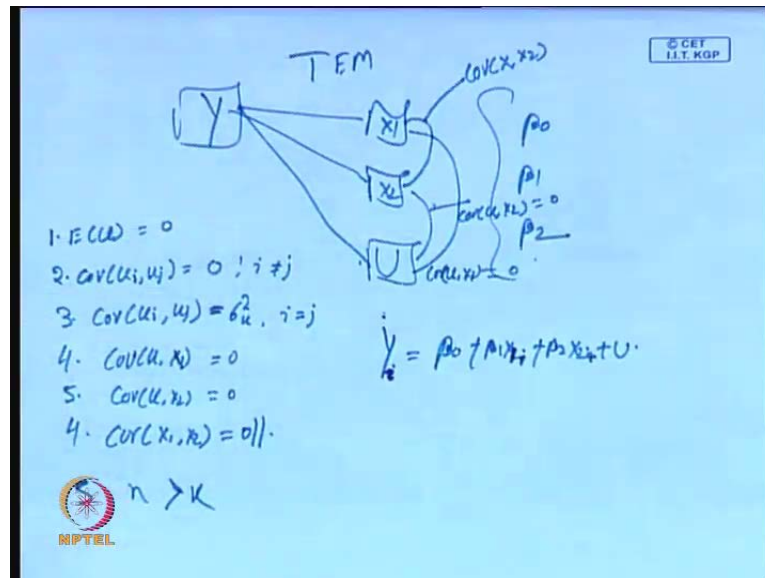 TEM
© CET
I.I.T. KGP
Y
X1
X2
U
COV(X, X2)
COV(U, X2) = 0
β0
β1
β2
1. E(U) = 0
2. COV(Ui, Uj) = 0 ; i ≠ j
3. COV(Ui, Uj) = σ²u, i = j
4. COV(U, X1) = 0
5. COV(U, X2) = 0
4. COV(X1, X2) = 0||.
n > K
Yi = β0 + β1X1i + β2X2i + U.
NPTEL